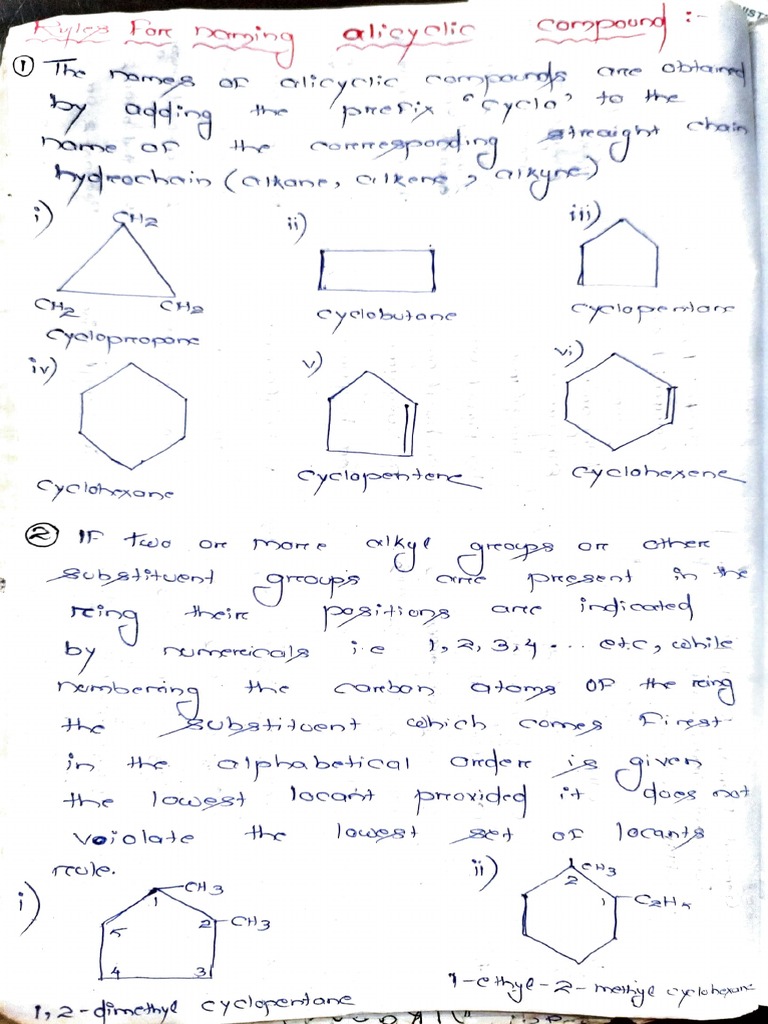 Rules For naming alicyclic compound :-
① The names of alicyclic compounds are obtained
by adding the prefix "cyclo" to the
name of the corresponding straight chain
hydrochain (alkane, alkene, alkyne)
i) CH2
ii)
iii)
CH2 CH2
cyclopropane
cyclobutane
cyclopentane
iv)
v)
vi)
cyclohexane
cyclopentene
cyclohexene
② IF two or more alkyl groups or other
substituent groups are present in the
ring their positions are indicated
by numericals i.e 1, 2, 3, 4 ... etc, while
numbering the carbon atoms OF the ring
the substituent which comes First
in the alphabetical order is given
the lowest locant provided it does not
voiolate the lowest set of locants
rule.
i)
1 CH3
2 CH3
5
4 3
1, 2-dimethyl cyclopentane
ii)
CH3
2
1 C2H5
1-ethyl-2-methyl cyclohexane